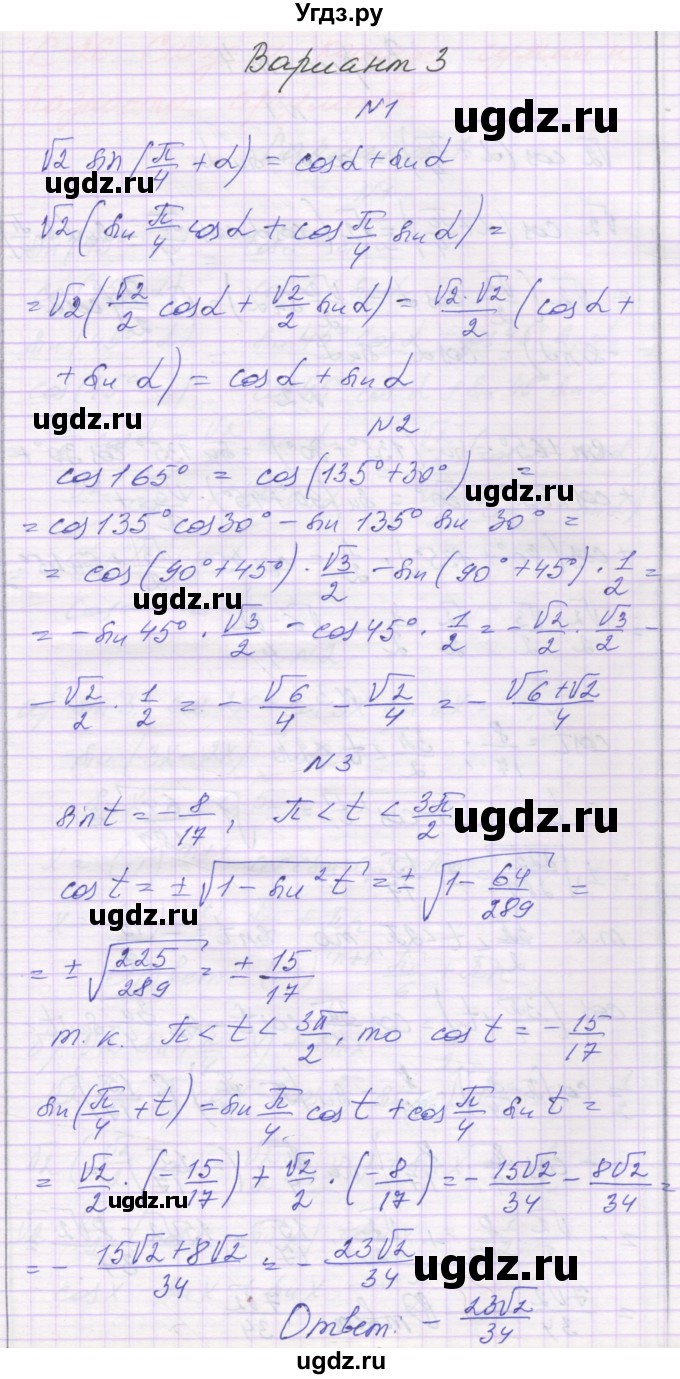 Угдз.ру
Вариант 3
N1
√2 sin(π/4 + α) = cosα + sinα
ugdz.ru
ugdz.ru
√2(sin π/4 cosα + cos π/4 sinα) =
= √2(√2/2 cosα + √2/2 sinα) = √2·√2/2 (cosα +
+ sinα) = cosα + sinα
ugdz.ru
N2
cos165° = cos(135°+30°) =
ugdz.ru
= cos135°cos30° - sin135° sin 30° =
= cos(90°+45°)·√3/2 - sin(90°+45°)·1/2 =
ugdz.ru
= -sin45°·√3/2 - cos45°·1/2 = -√2/2·√3/2 -
- √2/2·1/2 = - √6/4 - √2/4 = - (√6+√2)/4
N3
sin t = -8/17, π < t < 3π/2
ugdz.ru
cos t = ±√(1 - sin²t) = ±√(1 - 64/289) =
ugdz.ru
= ±√(225/289) = ± 15/17
т.к. π < t < 3π/2, то cos t = -15/17
sin(π/4 + t) = sin π/4 cos t + cos π/4 sin t =
= √2/2·(-15/17) + √2/2·(-8/17) = -15√2/34 - 8√2/34 =
ugdz.ru
= - (15√2+8√2)/34 = - 23√2/34
ugdz.ru
Ответ: - 23√2/34
ugdz.ru